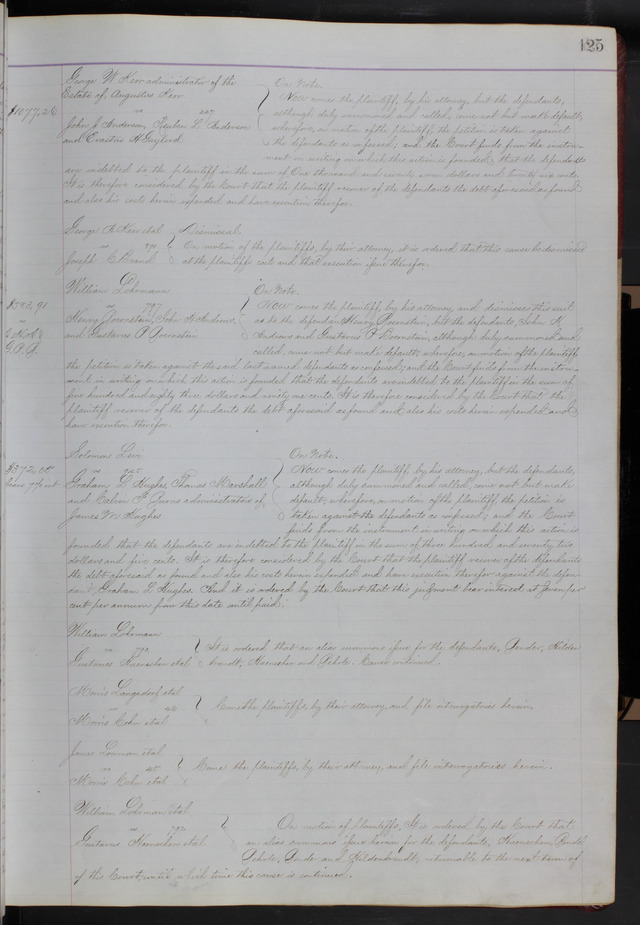 125
George W. Kerr administrator of the
Estate of Augustus Kerr
$1077,26
vs 227
John J Anderson, Reuben L. Anderson
and Erastus H Gaylord
On Note.
Now comes the plaintiff, by his attorney, but the defendants,
although duly summoned and called, come not but make default;
wherefore, on motion of the plaintiff, the petition is taken against
the defendants as confessed; and the Court finds from the instru-
ment in writing on which this action is founded, that the defendants
are indebted to the plaintiff in the sum of One thousand and seventy seven dollars and twenty six cents.
It is therefore considered by the Court that the plaintiff recover of the defendants the debt aforesaid as found
and also his costs herein expended and have execution therefor.
George K et al
vs
Joseph C. Brand
Dismissal.
On motion of the plaintiffs, by their attorney, it is ordered that this cause be dismissed
at the plaintiffs cost and that execution issue therefor.
William Lohrmann
vs 797
Henry Boernstein, John H Andrews
and Gustavus P Boernstein
On Note.
Now comes the plaintiff by his attorney and dismisses this suit
as to the defendant Henry Boernstein, but the defendants, John H
Andrews and Gustavus P Boernstein, although duly summoned and
called, come not but make default; wherefore, on motion of the plaintiff
the petition is taken against the said last named defendants as confessed; and the Court finds from the instru-
ment in writing on which this action is founded that the defendants are indebted to the plaintiff in the sum of
five hundred and eighty three dollars and ninety one cents. It is therefore considered by the Court that the
plaintiff recover of the defendants the debt aforesaid as found and also his costs herein expended and
have execution therefor.
Solomon Levi
$372,05
vs
bears 7% int
Graham L Hughes, Thomas Marshall
and Calvin F. Burns administrators of
James M Hughes
On Note.
Now comes the plaintiff by his attorney, but the defendants,
although duly summoned and called, come not but make
default; wherefore, on motion of the plaintiff, the petition is
taken against the defendants as confessed; and the Court
finds from the instrument in writing on which this action is
founded that the defendants are indebted to the plaintiff in the sum of three hundred and seventy two
dollars and five cents. It is therefore considered by the Court that the plaintiff recover of the defendants
the debt aforesaid as found and also his costs herein expended and have execution therefor against the defen-
dant, Graham L Hughes. And it is ordered by the Court that this judgment bear interest at seven per
cent per annum from this date until paid.
William Lohrmann
vs 792
Gustavus Heinrichen et al
It is ordered that an alias summons issue for the defendants, Pender, Hilden
brandt, Heinrichen and Schotz. Cause continued.
Morris Langsdorf et al
vs
Morris Cohn et al
Come the plaintiffs, by their attorney, and file interrogatories herein.
James Lowman et al
vs
Morris Cohn et al
Come the plaintiffs, by their attorney, and file interrogatories herein.
William Lohrman et al
vs 792
Gustavus Heinrichen et al
On motion of plaintiffs, It is ordered by the Court that
an alias summons issue herein for the defendants, Heinrichen,
Schotz, Pender and Hildenbrandt, returnable to the next term of
of this Court, until which time this cause is continued.